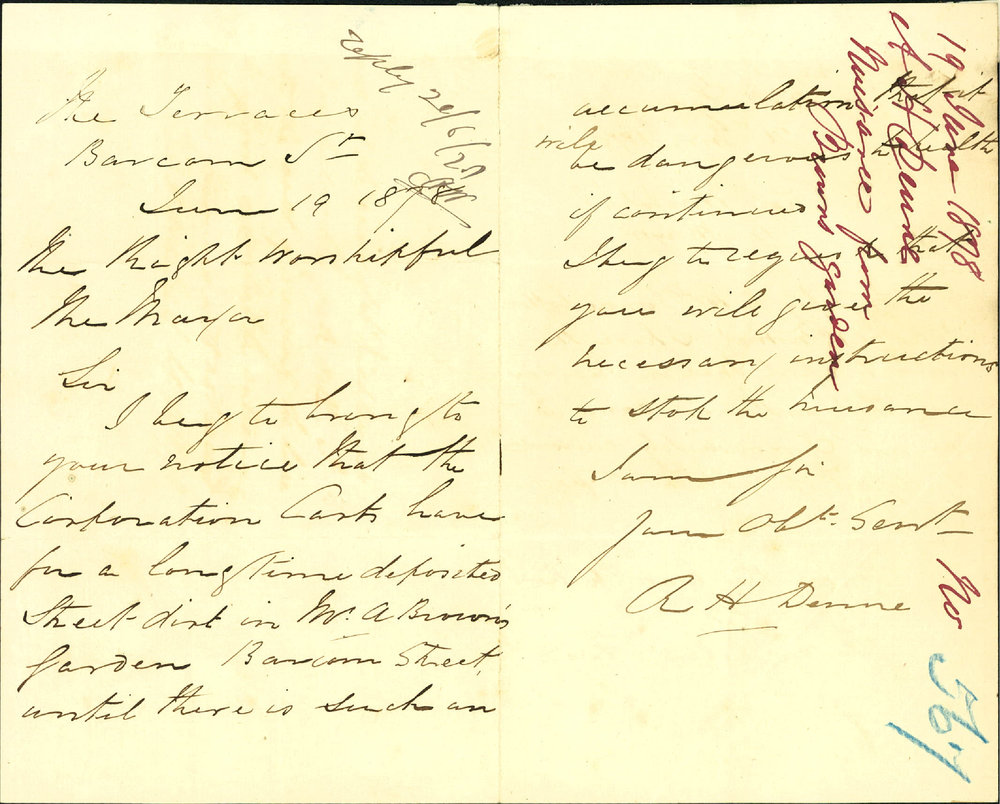 The Terraces
Barcom St
June 19 1878
The Right Worshipful
The Mayor
Sir
I beg to bring to
your notice that the
Corporation Carts have
for a long time deposited
Street dirt in Mr. A Brown's
Garden Barcom Street,
until there is such an
accumulation that it
will
be dangerous to health
if continued
I beg to request that
you will give the
necessary instructions
to stop the nuisance
I am Sir
Your Obt. Servt
R H Denne
reply 20/6/
19 June 1878
H Denne
Nuisance from
Browns garden
No
567